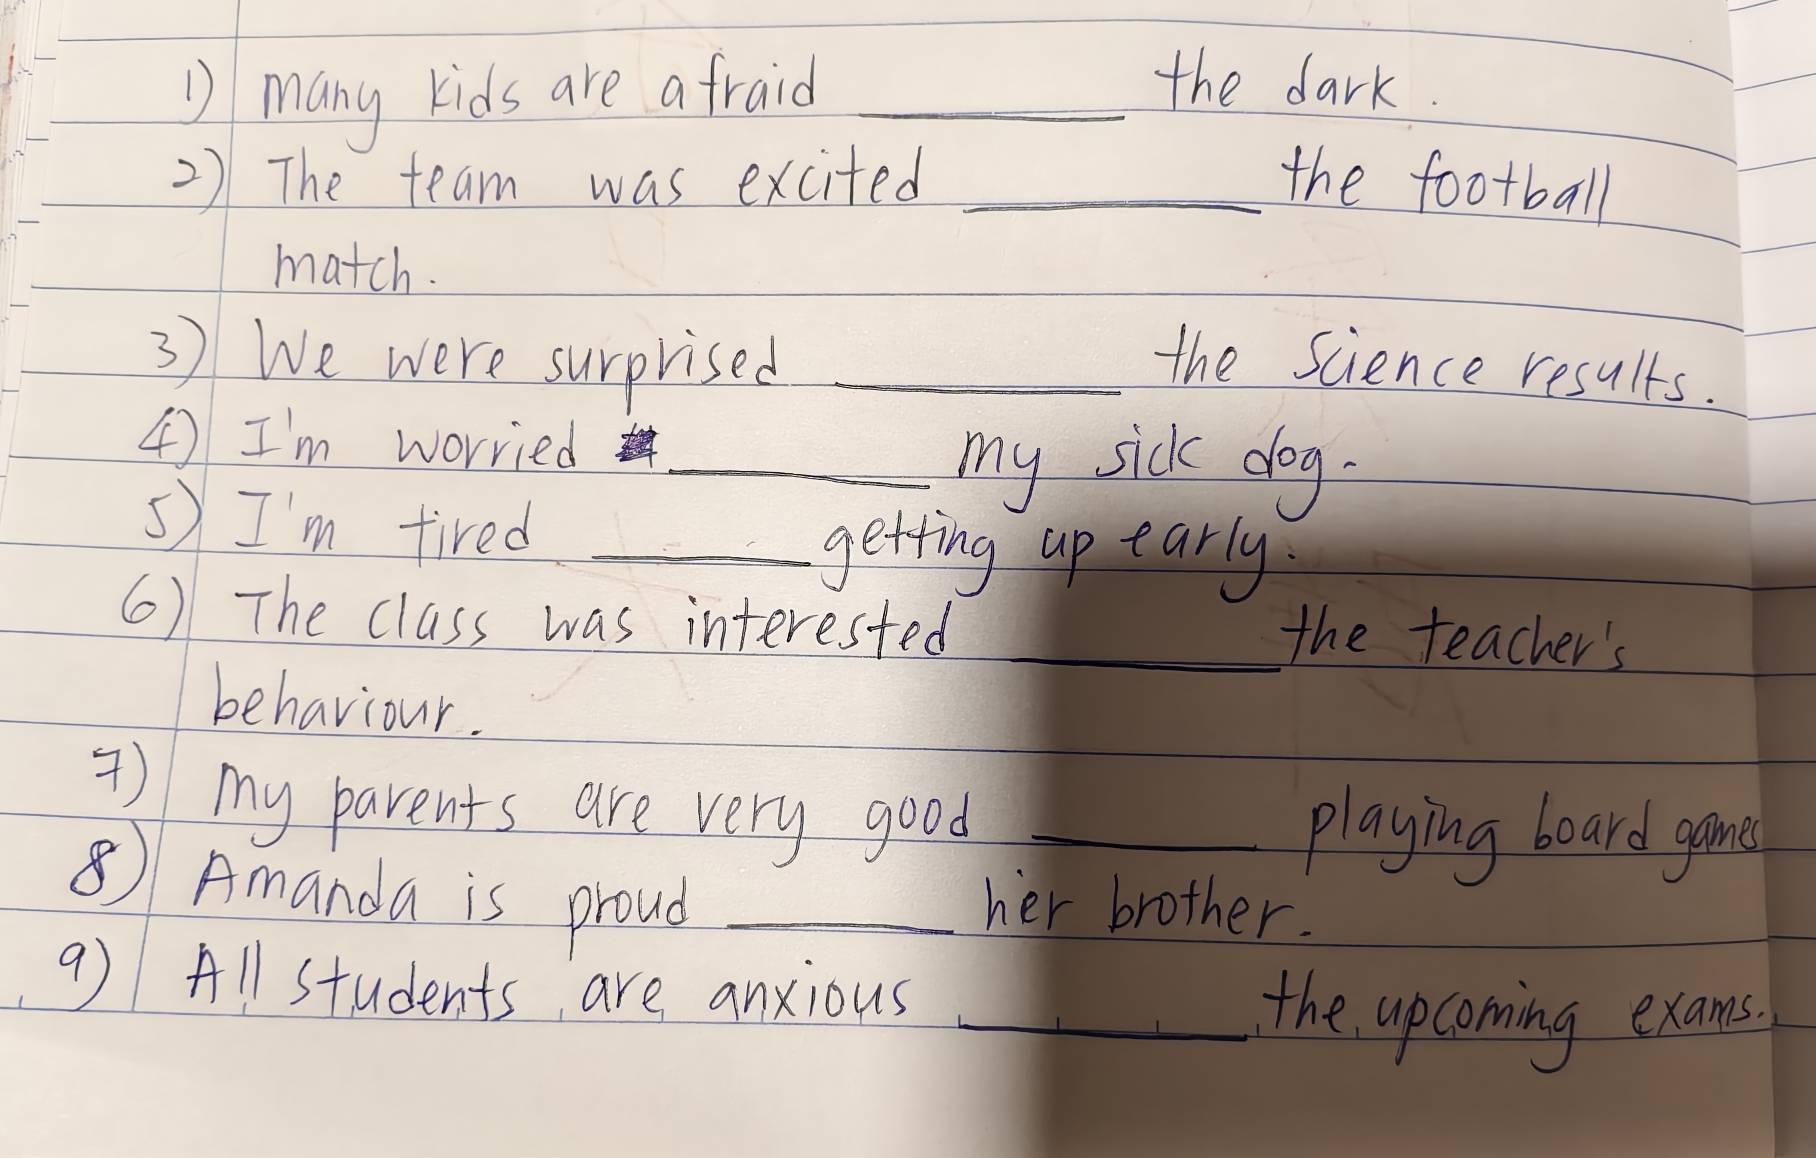 1) many kids are afraid ________ the dark.
2) The team was excited ________ the football
match.
3) We were surprised ________ the science results.
4) I'm worried ________ my sick dog.
5) I'm tired ________ getting up early.
6) The class was interested ________ the teacher's
behaviour.
7) My parents are very good ________ playing board games
8) Amanda is proud ________ her brother.
9) All students are anxious ________ the upcoming exams.